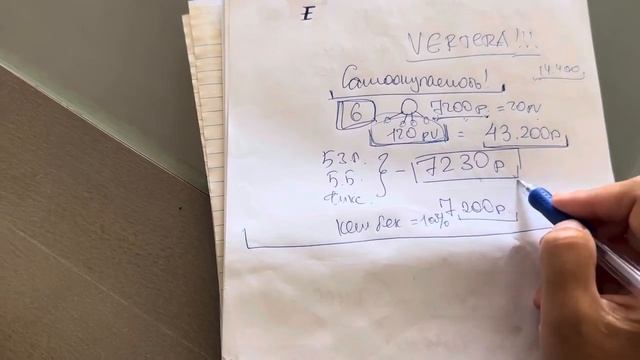 E
VERTERA!!!
14.400
Самоокупаемость!
6 7200р = 20pv
120 PV = 43.200р
Б.З.Р.
Б.Б. } - 7230р
Фикс.
7.200р
Кеш бек = 100%